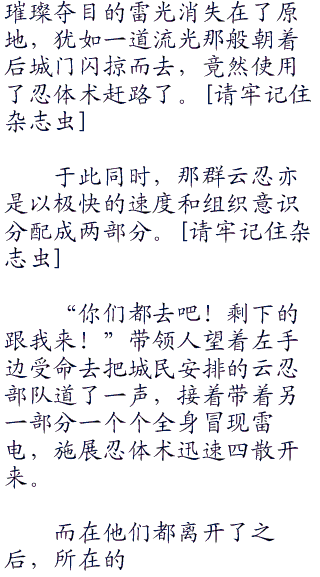 璀璨夺目的雷光消失在了原
地，犹如一道流光那般朝着
后城门闪掠而去，竟然使用
了忍体术赶路了。[请牢记住
杂志虫]
于此同时，那群云忍亦
是以极快的速度和组织意识
分配成两部分。[请牢记住杂
志虫]
“你们都去吧！剩下的
跟我来！”带领人望着左手
边受命去把城民安排的云忍
部队道了一声，接着带着另
一部分一个个全身冒现雷
电，施展忍体术迅速四散开
来。
而在他们都离开了之
后，所在的